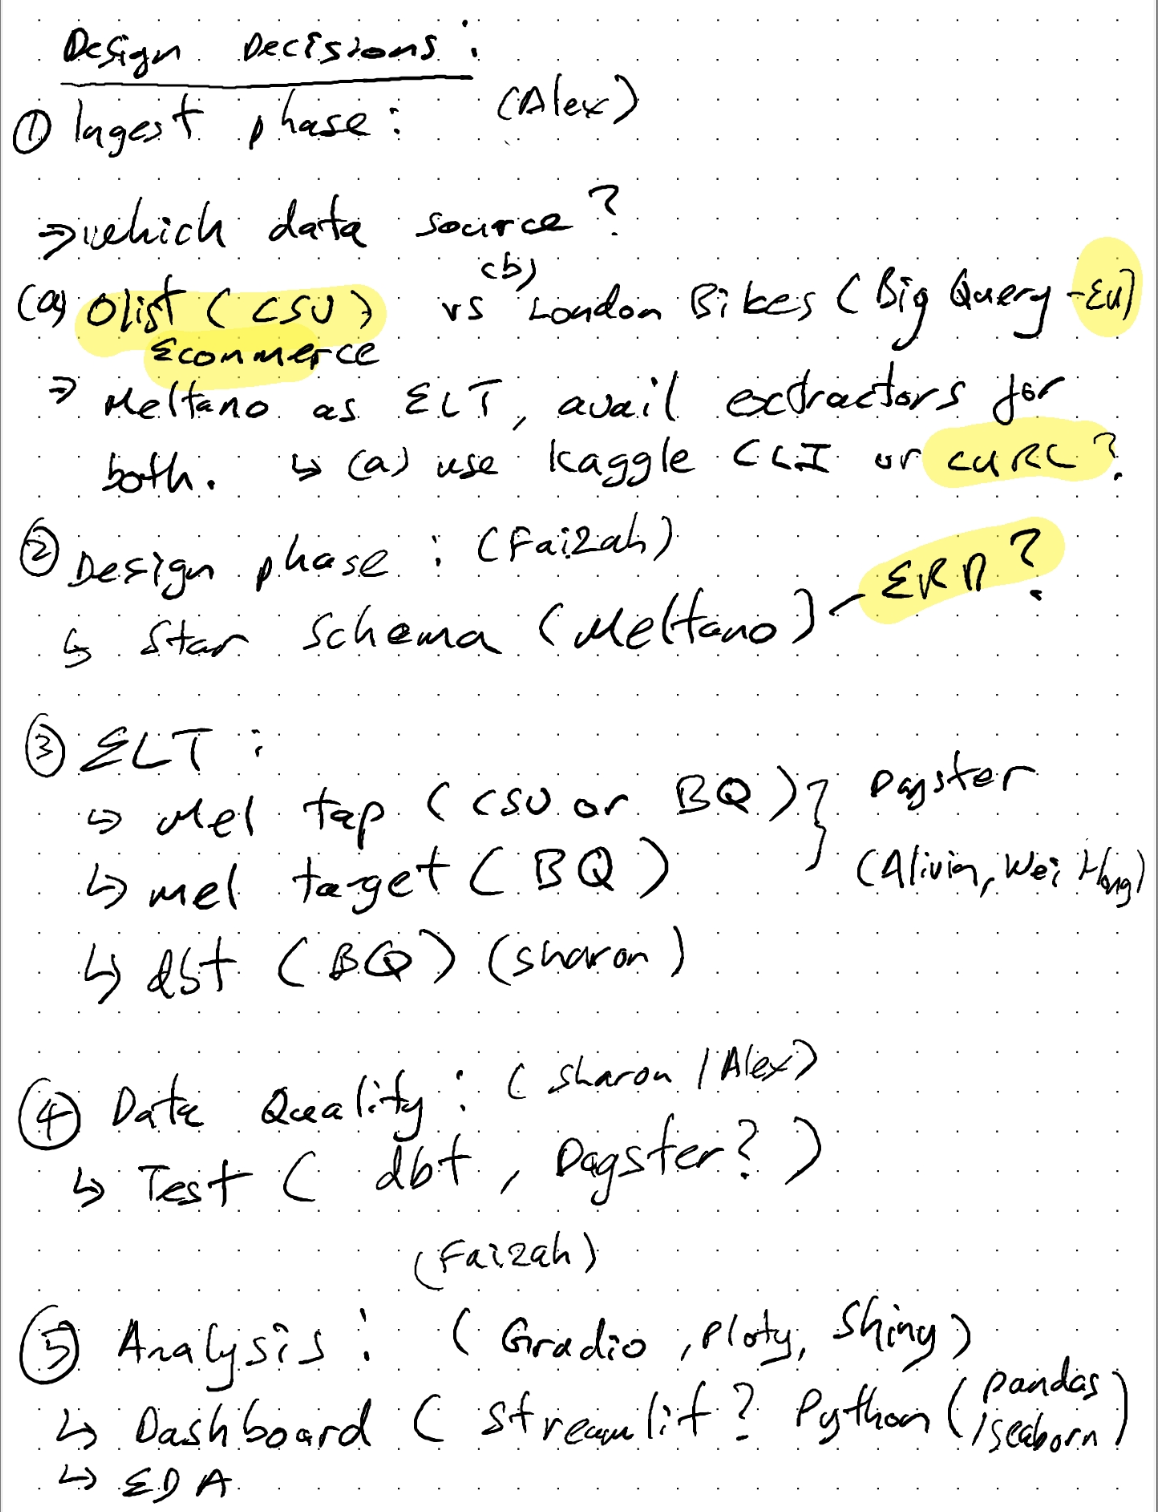 Design Decisions :
① Ingest phase : (Alex)
⇒ which data source ?
(a) Olist (CSV) vs (b) London Bikes (Big Query - EU)
Ecommerce
⇒ Meltano as ELT, avail extractors for
both. ↳ (a) use kaggle CLI or CURL ?
② Design phase : (Faizah)
↳ Star Schema (Meltano) - ERD ?
③ ELT :
↳ Mel tap (CSV or BQ) } Dagster
↳ mel target (BQ) (Alivin, Wei Hong)
↳ dbt (BQ) (sharon)
④ Data Quality : (sharon / Alex)
↳ Test ( dbt , Dagster? )
(Faizah)
⑤ Analysis : ( Gradio , Ploty, Shiny )
↳ Dashboard ( streamlit ? Python ( pandas
/seaborn )
↳ EDA